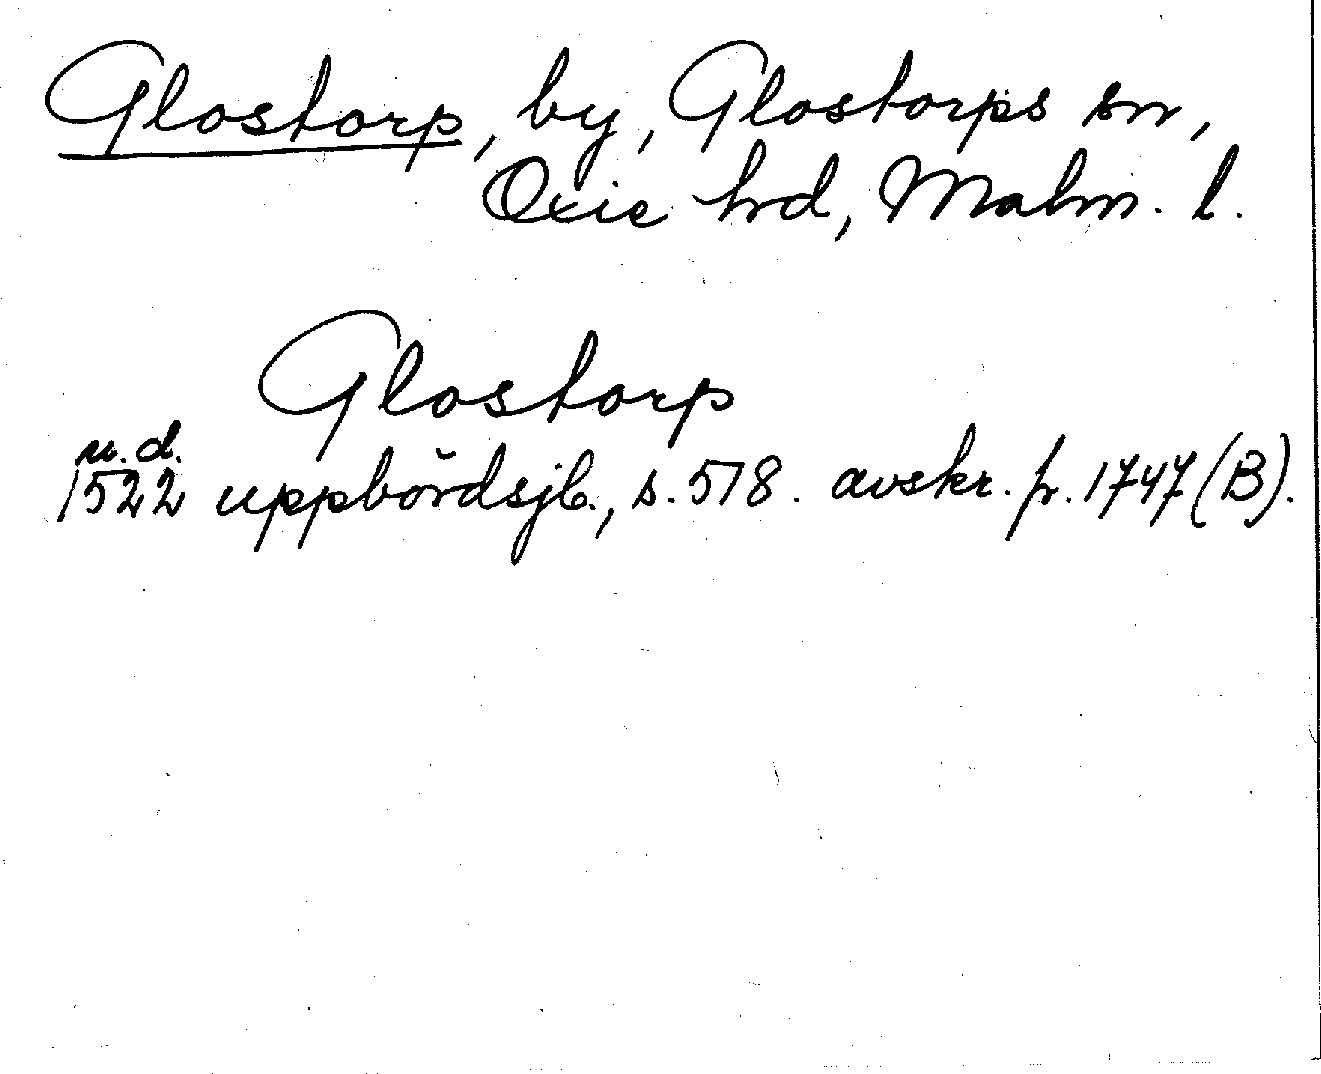 Glostorp, by, Glostorps sn,
Oxie hrd, Malm. l.
Glostorp
u.d.
1522 uppbördsjb., s. 518. avskr. fr. 1747 (B).